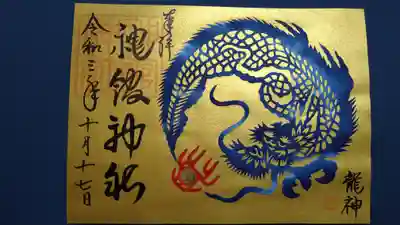 奉拝
神館神社
令和三年十月十七日
龍神